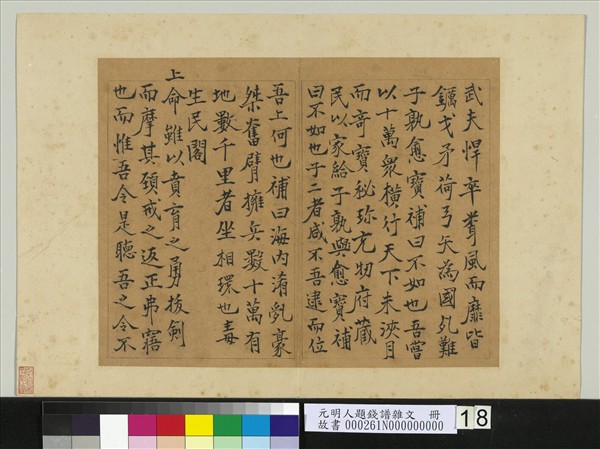 武夫悍卒聳風而靡皆
戈矛荷弓矢為國死難
子孰愈寶補曰不如也吾嘗
以十萬衆橫行天下未浹月
而竒寶秘珍充牣府藏
民以家給子孰與愈寶補
曰不如也子二者咸不吾逮而位
吾上何也補曰海内淆亂豪
桀奮臂擁兵數十萬有
地數千里者坐相環也毒
生民閣
上命雖以賁育之勇拔劍
而摩其頸戒之返正弗寤
也而惟吾令是聽吾之令不
元明人題錢譜雜文 冊
故書 000261N000000000
18